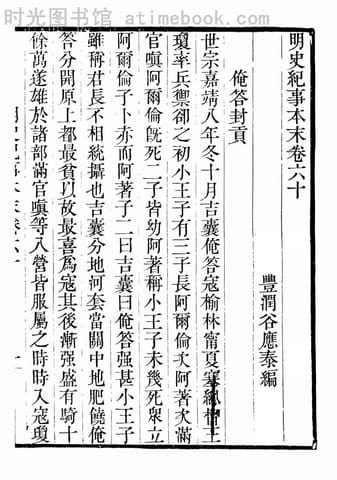 时光图书馆 - atimebook.com
明史紀事本末卷六十
豐潤谷應泰編
俺答封貢
世宗嘉靖八年冬十月吉囊俺答寇榆林甯夏塞總督王
瓊率兵禦卻之初小王子有三子長阿爾倫次阿著次滿
官嗔阿爾倫旣死二子皆幼阿著稱小王子未幾死眾立
阿爾倫子卜赤而阿著子二曰吉囊曰俺答强甚小王子
雖稱君長不相統攝也吉囊分地河套當關中地肥饒俺
答分開原上都最貧以故最喜爲寇其後漸强盛有騎十
餘萬遂雄於諸部滿官嗔等八營皆服屬之時時入寇瓊